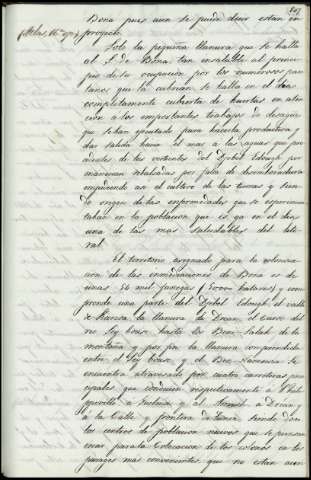 Bona pues aun se puede decir estan en
proyecto.
Solo la pequeña llanura que se halla
al S. de Bona, tan insalubre al princi-
pio de su ocupacion por los numerosos pan-
tanos que la cubrian, se halla en el dia
completamente cubierta de huertas, en aten-
cion a los importantes trabajos de desagüe
que se han ejecutado para hacerla productiva y
dar salida hacia el mar a las aguas que pro-
cedentes de las vertientes del Djebel Edough per-
manecian estancadas por falta de desembocadura
impidiendo asi el cultivo de las tierras y sien-
do origen de las enfermedades que se experimen-
taban en la poblacion que es ya en el dia
una de las mas saludables del lito-
ral.
El territorio asignado para la coloniza-
cion de las inmediaciones de Bona es de
unas mil fanegas hectareas) y com-
prende una parte del Djebel Edough, el valle
de la llanura de Drean, el curso del
rio Seybouse hasta los Beni Salah de la
montaña y por fin la llanura comprendida
entre el Seybouse y el Se
encuentra atravesado por cuatro carreteras prin-
cipales que conducen respectivamente a Phil-
ippeville a al a Drean y
a la Calle y frontera de Tunez siendo don-
los centros de poblacion nuevos que se piensan
crear para la colocacion de los colonos en los
parages mas convenientes que no estan aun